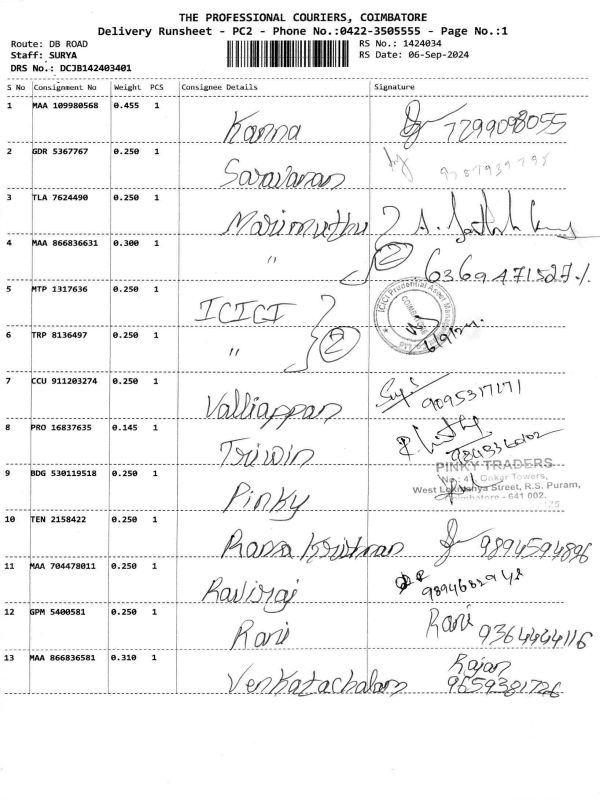 THE PROFESSIONAL COURIERS, COIMBATORE
Delivery Runsheet - PC2 - Phone No.:0422-3505555 - Page No.:1
Route: DB ROAD
Staff: SURYA
DRS No.: DCJB142403401
RS No.: 1424034
RS Date: 06-Sep-2024
S No Consignment No Weight PCS Consignee Details Signature
1 MAA 109980568 0.455 1 Kanna 7299098055
2 GDR 5367767 0.250 1 Saravanan
3 TLA 7624490 0.250 1 Marimuthu
4 MAA 866836631 0.300 1 " 2 6369471527
5 MTP 1317636 0.250 1 ICICI
ICICI Prudential Asset
6 TRP 8136497 0.250 1 " 2 6/9/24
7 CCU 911203274 0.250 1 Valliappan 9095317171
8 PRO 16837635 0.145 1 Triwin
9 BDG 530119518 0.250 1 Pinky
PINKY TRADERS
Onkar Towers,
West Lokmanya Street, R.S. Puram,
Coimbatore - 641 002.
10 TEN 2158422 0.250 1 Rama Krishnan 9894594896
11 MAA 704478011 0.250 1 Raviraj
12 GPM 5400581 0.250 1 Rani Rani 9364444116
13 MAA 866836581 0.310 1 Venkatachalam Rajan
9659381726